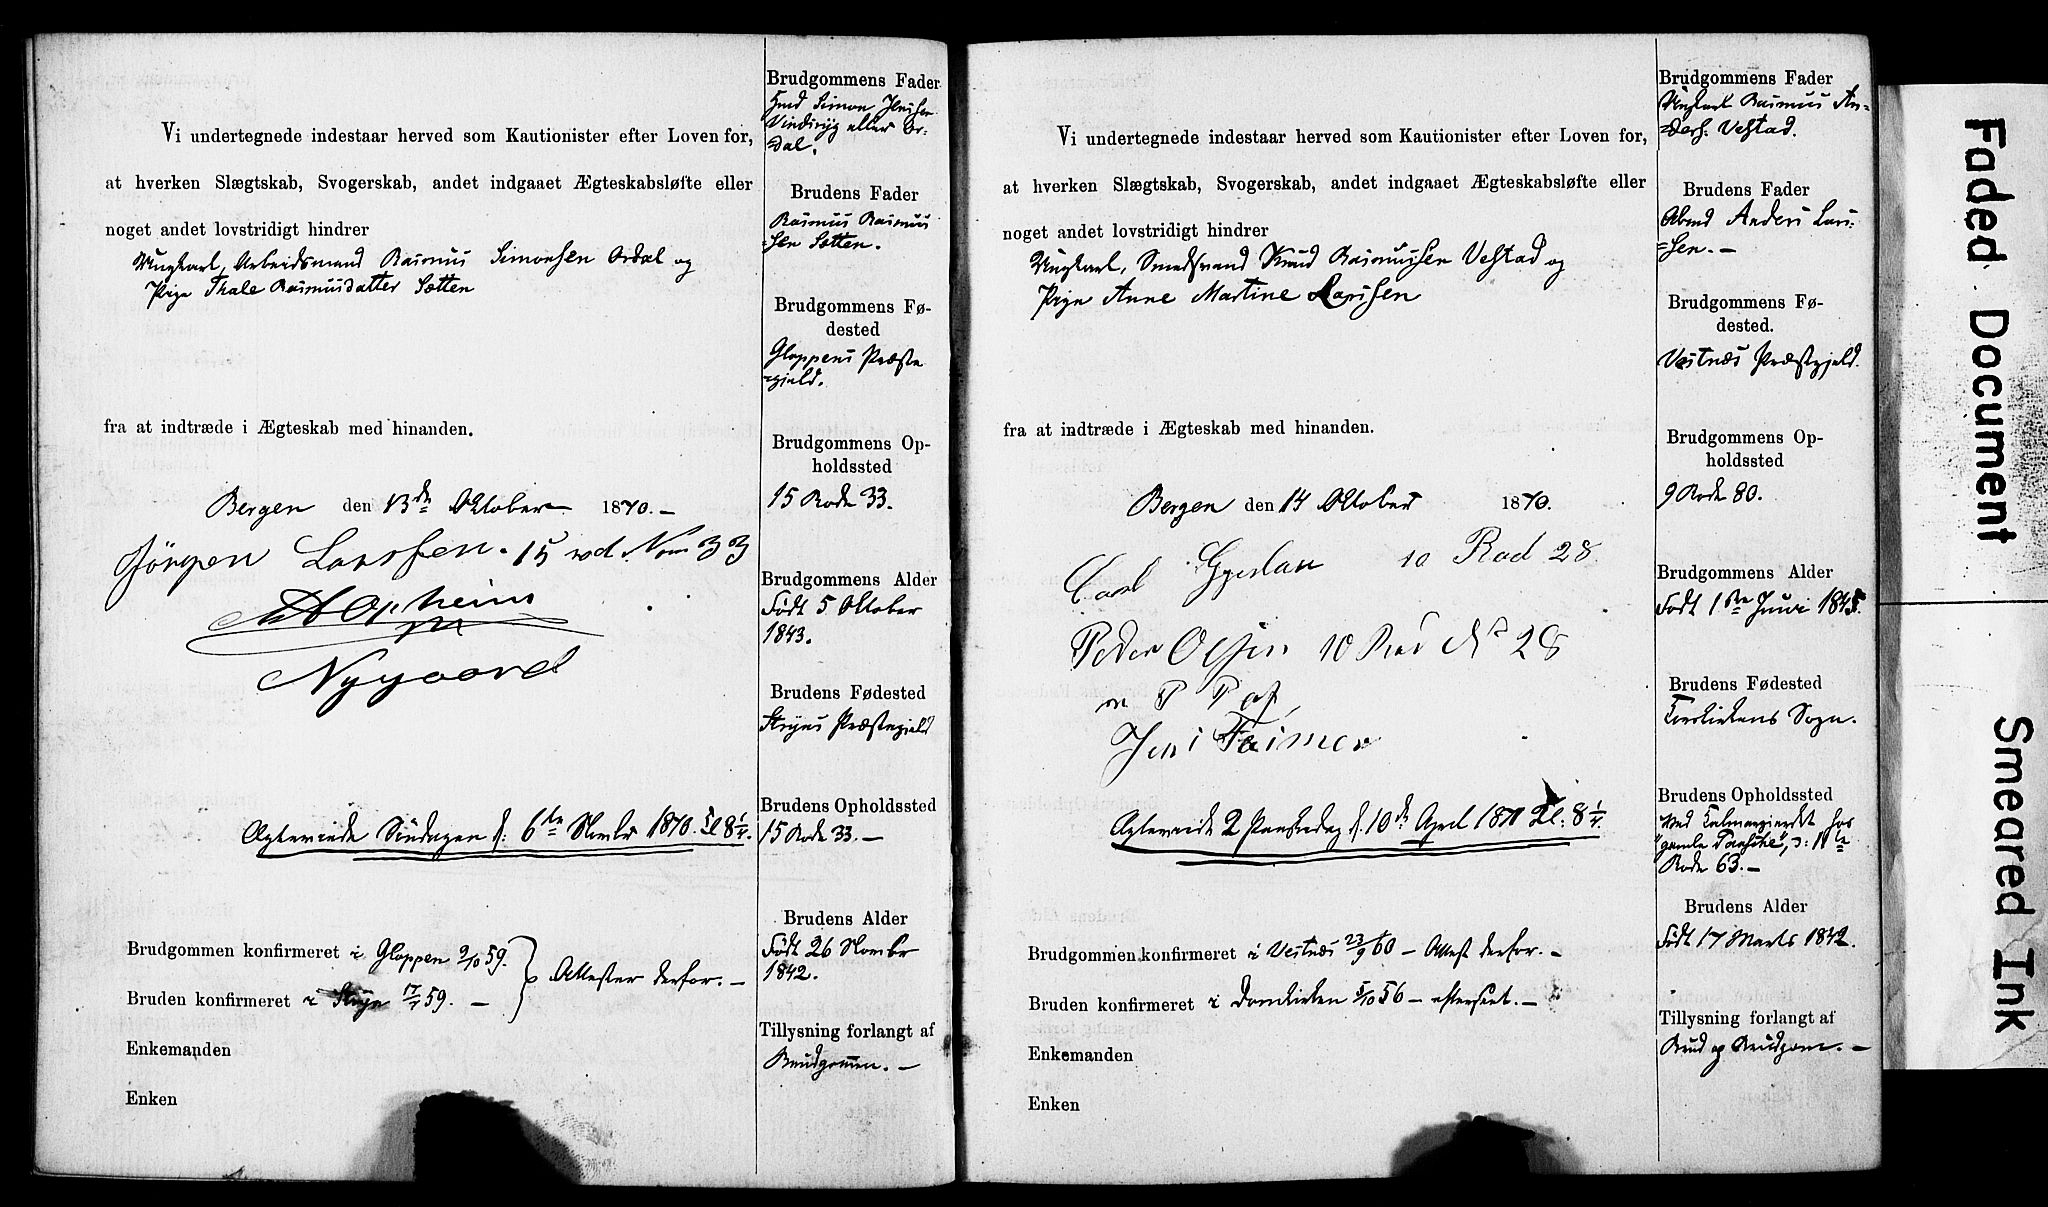 Vi undertegnede indestaar herved som Kautionister efter Loven for,
at hverken Slægtskab, Svogerskab, andet indgaaet Ægteskabsløfte eller
noget andet lovstridigt hindrer
Ungkarl, Arbeidsmand Rasmus Simonsen Ordal og
Pige Thale Rasmusdatter Sætten
fra at indtræde i Ægteskab med hinanden.
Bergen den 13de Oktober 1870.-
Jörgen Larssen. 15 rd. Nom 33
Nygaard
Agtervede Søndagen d: 6te Novbr 1870. Kl 8 1/4.
Brudgommen konfirmeret i Gloppen 9/10 59.
Attester derfor. -
Bruden konfirmeret i Stryn 59. -
Enkemanden
Enken
Brudgommens Fader
Simon Jensen
eller Or-
dal.
Brudens Fader
Rasmus Rasmus
=sen Sætten.
Brudgommens Fø-
dested
Gloppens Præste
=gjeld.
Brudgommens Op-
holdssted
15 Rode 33.
Brudgommens Alder
Født 5 Oktober
1843.
Brudens Fødested
Stryns Præstegjeld
Brudens Opholdssted
15 Rode 33. -
Brudens Alder
Født 26 Novbr
1842.
Tillysning forlangt af
Brudgommen. -
Vi undertegnede indestaar herved som Kautionister efter Loven for,
at hverken Slægtskab, Svogerskab, andet indgaaet Ægteskabsløfte eller
noget andet lovstridigt hindrer
Ungkarl, Smedsvend Knud Rasmussen Vestad og
Pige Anne Martine Larssen
fra at indtræde i Ægteskab med hinanden.
Bergen den 14 Oktober 1870.
Carl 10 Rod 28.
Peder Olsen 10 Rod No 28
m P P af
Agtervede 2 Paaskedag d. 10de April 1871 Kl: 8 1/4.
Brudgommen konfirmeret i Vestnæs 23/9 60 - Attest derfor. -
Bruden konfirmeret i Domkirken 5/10 56 - efterseet. -
Enkemanden
Enken
Brudgommens Fader
Ungkarl Rasmus An-
=ders. Vestad.
Brudens Fader
Anders Lars-
=sen. -
Brudgommens Fø-
dested.
Vestnæs Præstegjeld.
Brudgommens Op-
holdssted
9 Rode 80.
Brudgommens Alder
Født 1ste Juni 1845.
Brudens Fødested
Korskirkens Sogn.
Brudens Opholdssted
Ved hos
"gamle
Rode 63. -
Brudens Alder
Født 17 Marts 1842.
Tillysning forlangt af
Brud og Brudgom. -
Faded Document
Smeared Ink